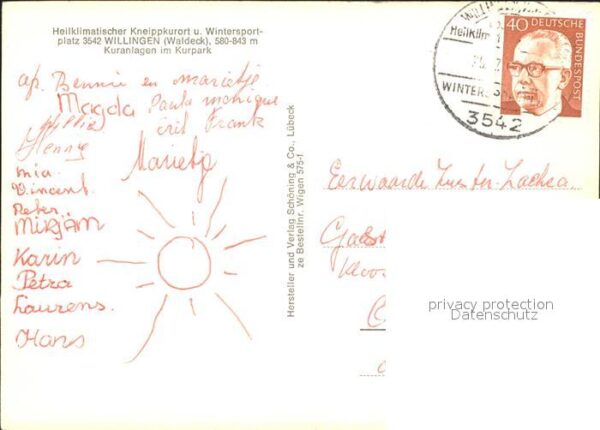 Heilklimatischer Kneippkurort u. Wintersport-
platz 3542 WILLINGEN (Waldeck), 580-843 m
Kuranlagen im Kurpark
ap. Bennie en marietje
Magda Paula monique
erit Frank
Henny
Marietje
mia
Vincent.
Peter.
Mirjam
Karin
Petra
Laurens.
Hans
Hersteller und Verlag Schöning & Co., Lübeck
ze Bestellnr. Wigen 575-f
40 DEUTSCHE
BUNDESPOST
Heilklim
WINTERS
3542
Eerwaarde Zuster Zachea
Gast
Kloo
privacy protection
Datenschutz